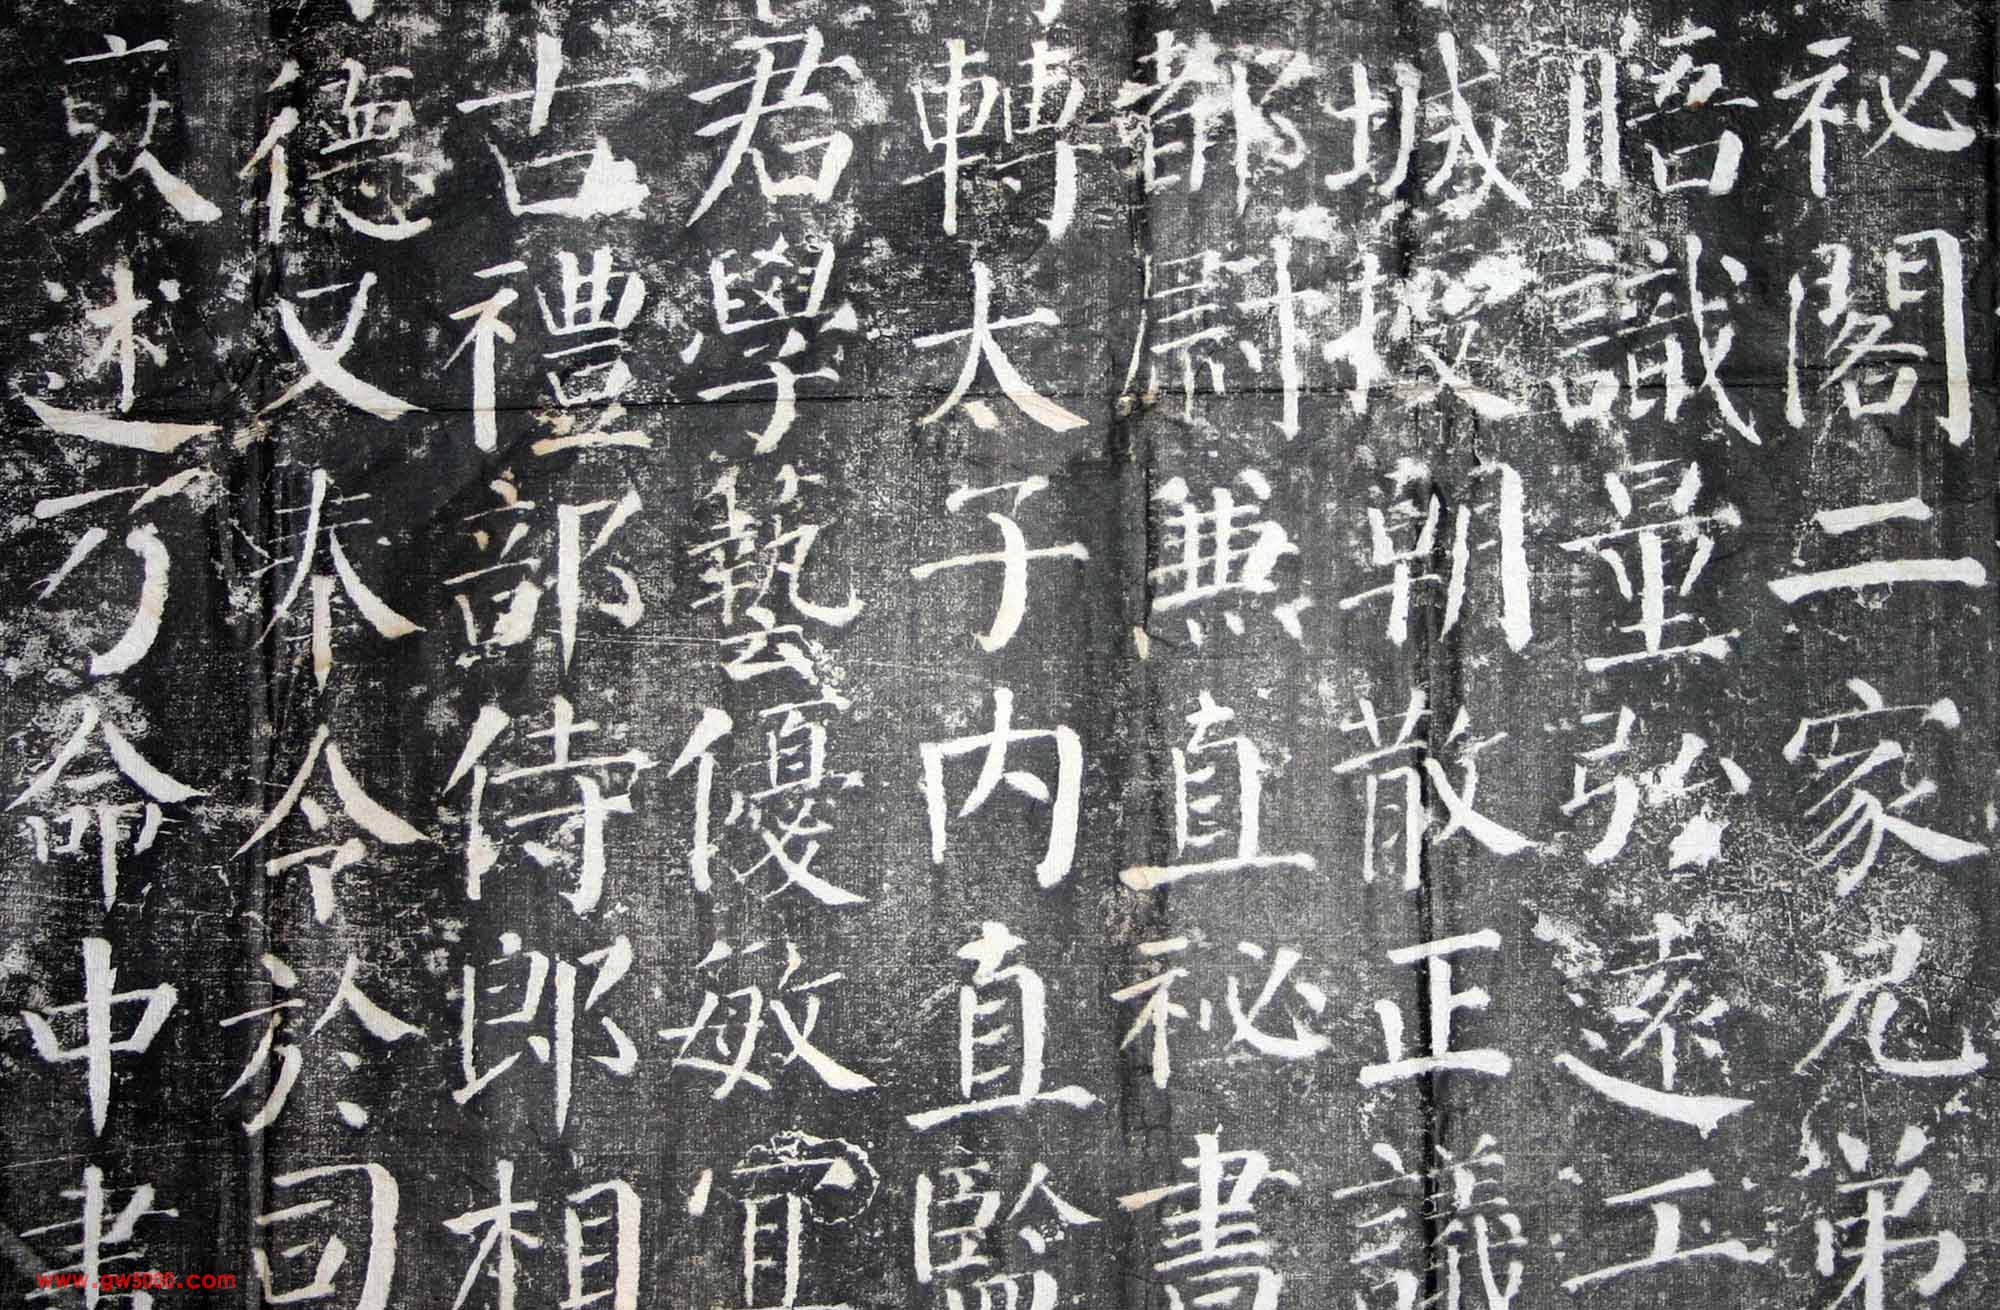 祕閣二家兄弟
晤識量弘遠工
城授朝散正議
都尉兼直祕書
轉太子內直監
君學藝優敏宜
吉禮部侍郎相
德又奉令於司
裒述乃命中書
www.gw5000.com